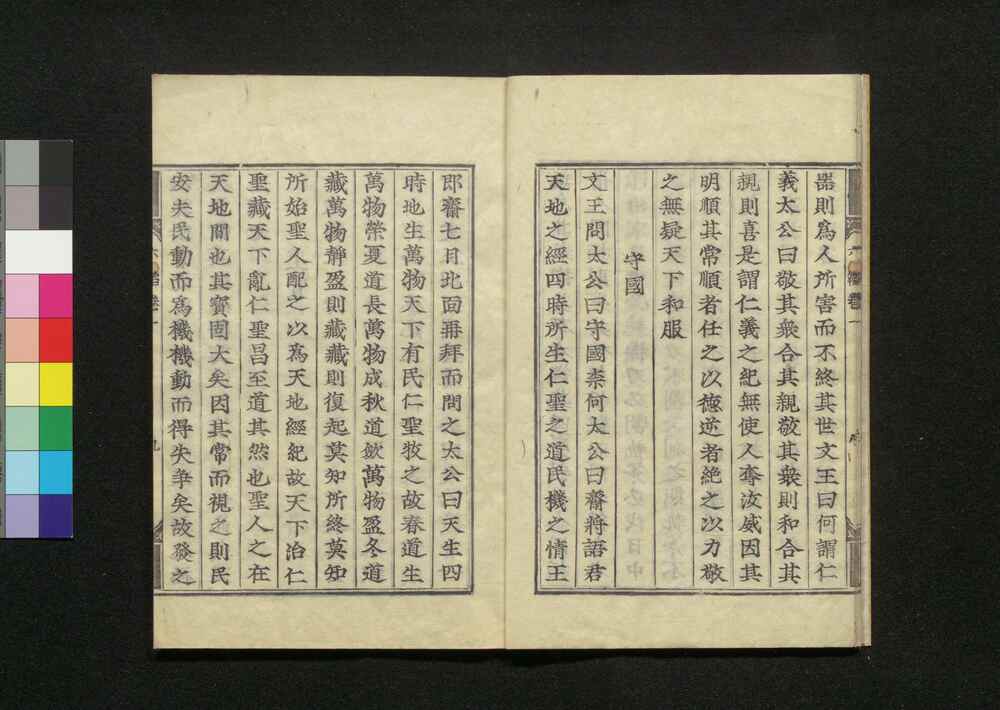 器則爲人所害而不終其世文王曰何謂仁
義太公曰敬其衆合其親敬其衆則和合其
親則喜是謂仁義之紀無使人奪汝威因其
明順其常順者任之以德逆者絶之以力敬
之無疑天下和服
守國
文王問太公曰守國柰何太公曰齋將語君
天地之經四時所生仁聖之道民機之情王
即齋七日北面再拜而問之太公曰天生四
時地生萬物天下有民仁聖牧之故春道生
萬物榮夏道長萬物成秋道斂萬物盈冬道
藏萬物靜盈則藏藏則復起莫知所終莫知
所始聖人配之以爲天地經紀故天下治仁
聖藏天下亂仁聖昌至道其然也聖人之在
天地間也其寶固大矣因其常而視之則民
安夫民動而爲機機動而得失爭矣故發之
六韜卷一
九